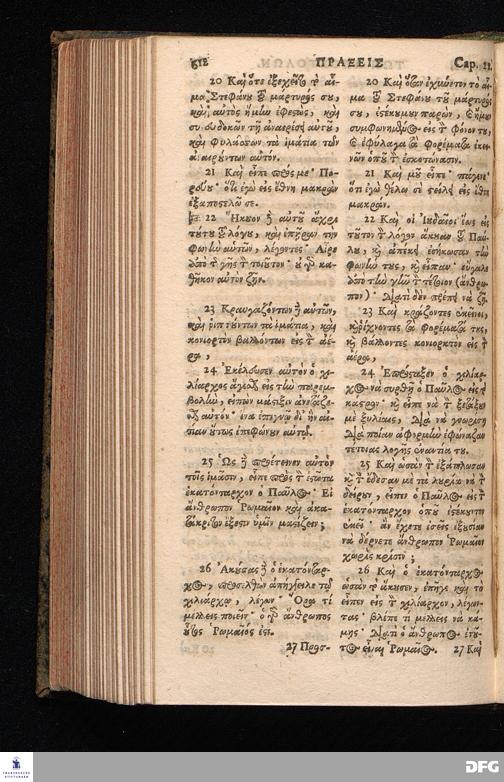 512 ΠΡΑΞΕΙΣ Cap. 22.
20 Καὶ ὅτε ἐξεχεῖτο τὸ αἷ-
μα Στεφάνου τοῦ μάρτυρός σου,
καὶ αὐτὸς ἤμην ἐφεστὼς, καὶ
συνευδοκῶν τῇ ἀναιρέσει αὐτοῦ,
καὶ φυλάσσων τὰ ἱμάτια τῶν
ἀναιρούντων αὐτόν.
21 Καὶ εἶπε πρός με· Πο-
ρεύου· ὅτι ἐγὼ εἰς ἔθνη μακρὰν
ἐξαποστελῶ σε.
22 Ἤκουον δὲ αὐτοῦ ἄχρι
τούτου τοῦ λόγου, καὶ ἐπῆραν τὴν
φωνὴν αὐτῶν, λέγοντες· Αἶρε
ἀπὸ τῆς γῆς τὸν τοιοῦτον· οὐ γὰρ κα-
θῆκον αὐτὸν ζῆν.
23 Κραυγαζόντων δὲ αὐτῶν,
καὶ ῥιπτούντων τὰ ἱμάτια, καὶ
κονιορτὸν βαλλόντων εἰς τὸν ἀέ-
ρα,
24 Ἐκέλευσεν αὐτὸν ὁ χι-
λίαρχος ἄγεσθαι εἰς τὴν παρεμ-
βολὴν, εἰπὼν μάστιξιν ἀνετάζε-
σθαι αὐτόν· ἵνα ἐπιγνῷ δι' ἣν αἰ-
τίαν οὕτως ἐπεφώνουν αὐτῷ.
25 Ὡς δὲ προέτεινεν αὐτὸν
τοῖς ἱμᾶσιν, εἶπε πρὸς τὸν ἑστῶτα
ἑκατόνταρχον ὁ Παῦλος· Εἰ
ἄνθρωπον Ῥωμαῖον καὶ ἀκα-
τάκριτον ἔξεστιν ὑμῖν μαστίζειν;
26 Ἀκούσας δὲ ὁ ἑκατόνταρ-
χος, προσελθὼν ἀπήγγειλε τῷ
χιλιάρχῳ, λέγων· Ὅρα τί
μέλλεις ποιεῖν· ὁ γὰρ ἄνθρωπος
οὗτος Ῥωμαῖός ἐστι.
27 Προσ-
20 Καὶ ὅταν ἐχύνετον τὸ αἷ-
μα τοῦ Στεφάνου τοῦ μάρτυρός
σου, ἐστέκουμουν παρὼν, καὶ ἤμουν
συμφωνημένος εἰς τὸν φόνον του,
καὶ ἐφύλαγα τὰ φορέματα ἐκει-
νῶν ὁποῦ τὸν ἐσκότωνασιν.
21 Καὶ μοῦ εἶπε· πάγαινε·
ὅτι ἐγὼ θέλω σὲ στείλῃ εἰς ἔθνη
μακράν.
22 Καὶ οἱ Ἰουδαῖοι ἕως εἰς
τοῦτον τὸν λόγον ἄκουαν τοῦ Παύ-
λου, καὶ ἀπέκει ἐσήκωσαν τὴν
φωνήν τους, καὶ εἶπαν· εὔγαλε
ἀπὸ τὴν γῆν τὸν τέτοιον (ἄνθρω-
πον)· διατὶ δὲν πρέπει νὰ ζῇ.
23 Καὶ κράζοντες ἐκεῖνοι,
καὶ ῥίχνοντες τὰ φορέματά τους,
καὶ βάλλοντες κονιορκτὸν εἰς τὸν
ἀέρα,
24 Ἐπρόσταξεν ὁ χιλίαρ-
χος νὰ συρθῇ ὁ Παῦλος εἰς τὸ
κάστρον· καὶ εἶπε νὰ τὸν ἐξετάξουν
μὲ ξυλίαις, διὰ νὰ γνωρίσῃ
διὰ ποίαν ἀφορμὴν ἐφώναζαν
τέτοιας λογῆς ἐναντία του.
25 Καὶ ὡσὰν τὸν ἐξάπλωσαν
καὶ τὸν ἔδεσαν μὲ τὰ λυρία νὰ τὸν
δείρουν, εἶπεν ὁ Παῦλος εἰς τὸν
ἑκατόνταρχον ὁποῦ ἐστέκετον
ἐκεῖ· ἂν ἔχετε ἐσεῖς ἐξουσίαν
νὰ δέρνετε ἄνθρωπον Ῥωμαῖον
χωρὶς κρίσιν;
26 Καὶ ὁ ἑκατόνταρχος
ὡσὰν τὸ ἄκουσεν, ἐπῆγε καὶ τὸ
εἶπεν εἰς τὸν χιλίαρχον, λέγον-
τας· βλέπε τί μέλλεις νὰ κά-
μῃς· διατὶ ὁ ἄνθρωπος ἐτοῦ-
τος εἶναι Ῥωμαῖος. 27 Καὶ
FRANCKESCHE STIFTUNGEN
DFG